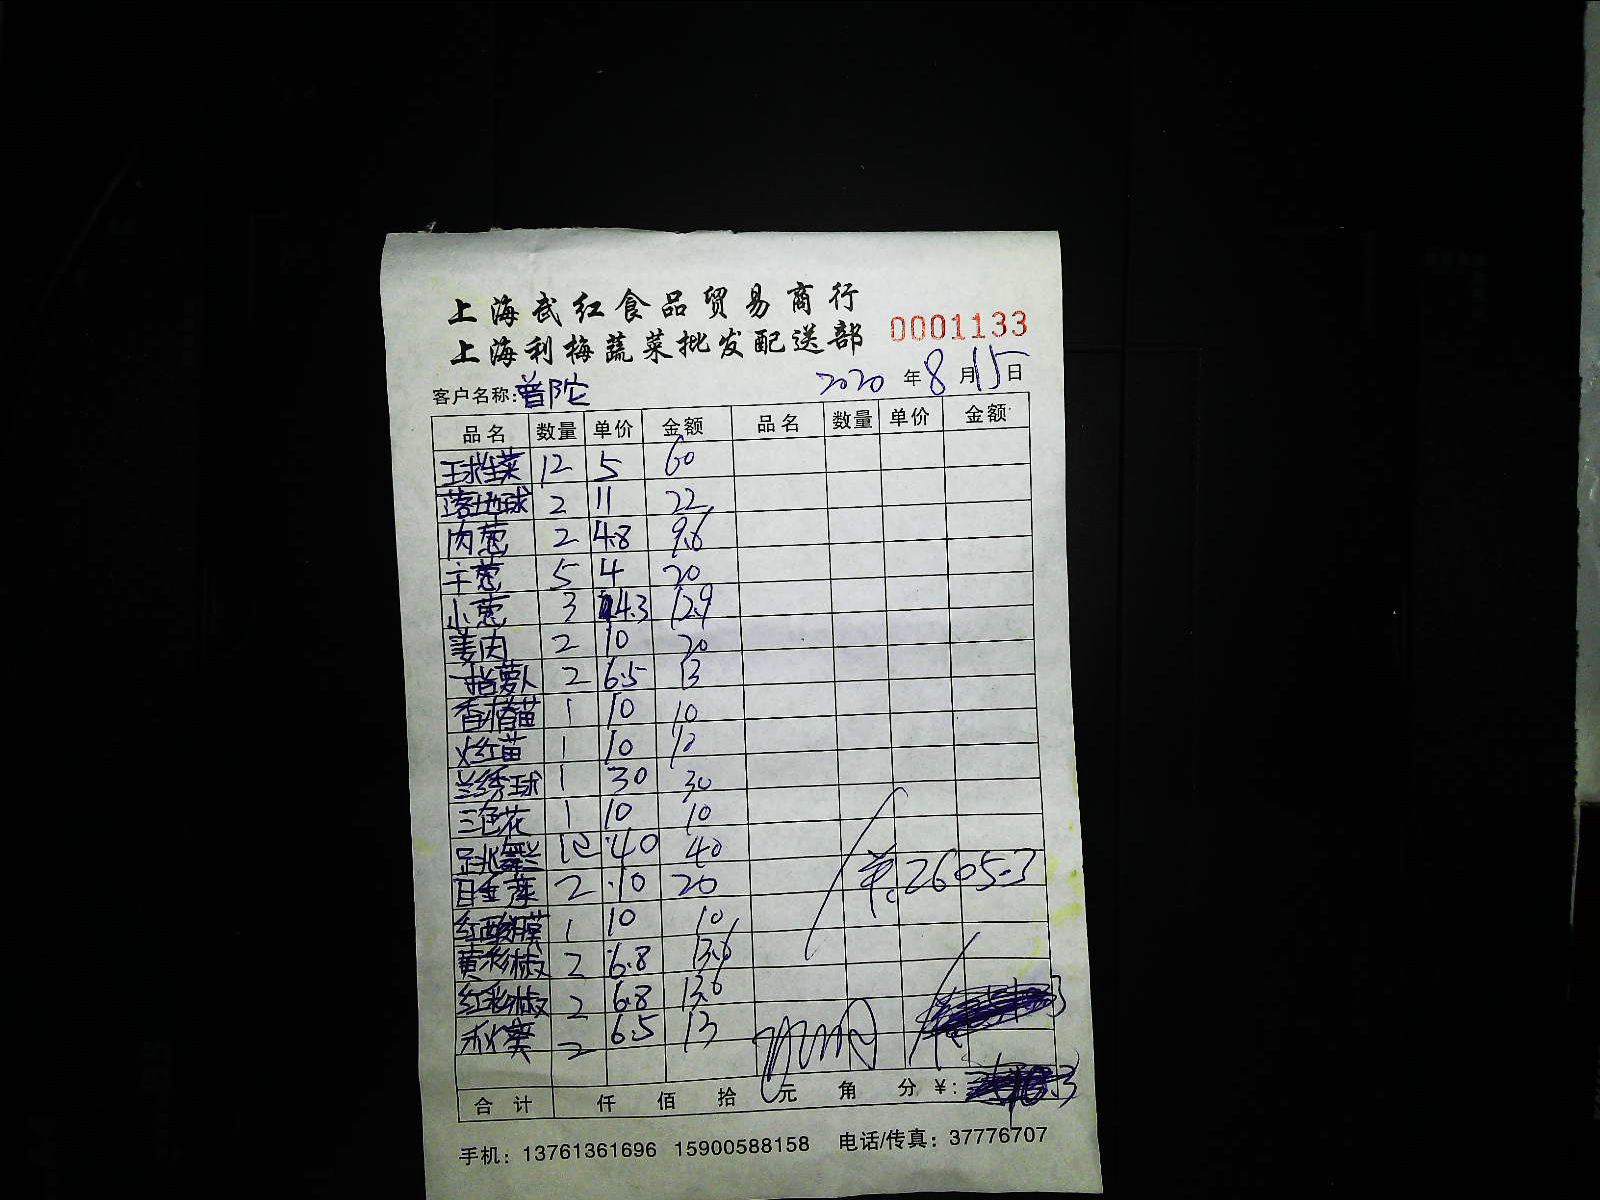 上海武红食品贸易商行
上海利梅蔬菜批发配送部
0001133
客户名称:普陀 2020年8月15日
品名 数量 单价 金额 品名 数量 单价 金额
球生菜 12 5 60
落地球 2 11 22
肉葱 2 4.8 9.6
干葱 5 4 20
小葱 3 4.3 12.9
姜肉 2 10 20
手指萝卜 2 6.5 13
香椿苗 1 10 10
火红苗 1 10 10
兰绣球 1 30 30
三色花 1 10 10
跳舞兰 40 40
2 10 20
红酸膜 1 10 10
黄彩椒 2 6.8 13.6
红彩椒 2 6.8 13.6
秋葵 2 6.5 13
单:2605.3
合计 仟 佰 拾 元 角 分 ¥:
手机:13761361696 15900588158 电话/传真:37776707